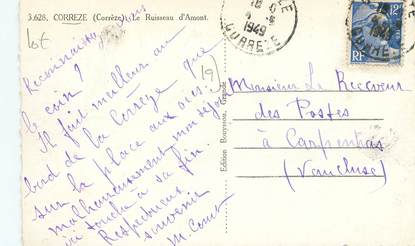 3.628. CORREZE (Corrèze). Le Ruisseau d'Amont.
lot
Reconnaissez-vous
le coin ?
Il fait meilleur au
bord de la Corrèze que
sur la place aux ours.
malheureusement mon séjour
ici touche à sa fin.
Respectueux
souvenir
(19)
Edition Bouyssou,
1949
CORREZE
12F
RF
Monsieur Le Receveur
des Postes
à Carpentras
(Vaucluse)